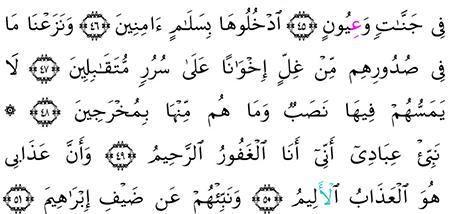 فِى جَنَّـٰتٍ وَعِيُونٍ ﴿٤٥﴾ ٱدْخُلُوهَا بِسَلَـٰمٍ ءَامِنِينَ ﴿٤٦﴾ وَنَزَعْنَا مَا
فِى صُدُورِهِم مِّنْ غِلٍّ إِخْوَٰنًا عَلَىٰ سُرُرٍ مُّتَقَـٰبِلِينَ ﴿٤٧﴾ لَا
يَمَسُّهُمْ فِيهَا نَصَبٌ وَمَا هُم مِّنْهَا بِمُخْرَجِينَ ﴿٤٨﴾ ۞
نَبِّئْ عِبَادِىٓ أَنِّىٓ أَنَا ٱلْغَفُورُ ٱلرَّحِيمُ ﴿٤٩﴾ وَأَنَّ عَذَابِى
هُوَ ٱلْعَذَابُ ٱلْأَلِيمُ ﴿٥٠﴾ وَنَبِّئْهُمْ عَن ضَيْفِ إِبْرَٰهِيمَ ﴿٥١﴾